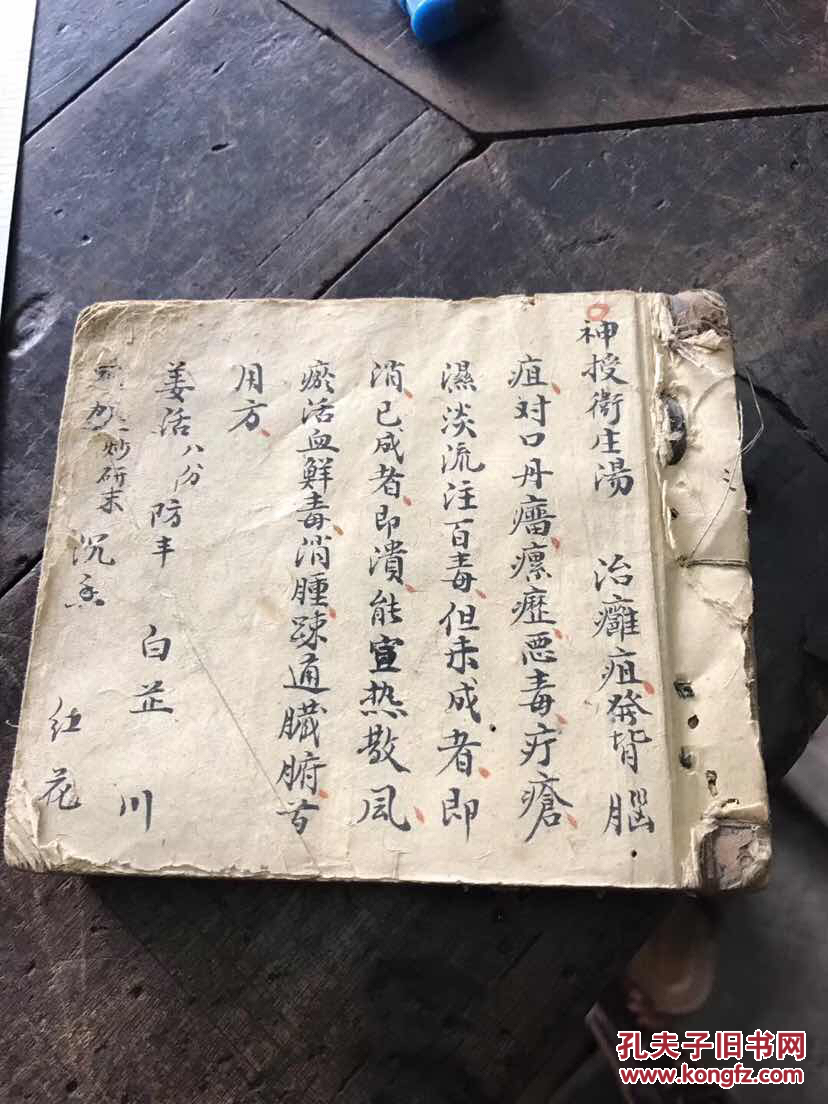 神授衛庄湯 治癰疽發背腦
疽对口丹瘤瘰癧悪毒疔瘡
濕淡流注百毒但未成者即
消已成者即潰能宣热散風
瘀活血鲜毒消腫疎通臓腑
用方
姜活八分 防丰 白芷 川
炒研末 沉香 红花
孔夫子旧书网
www.kongfz.com